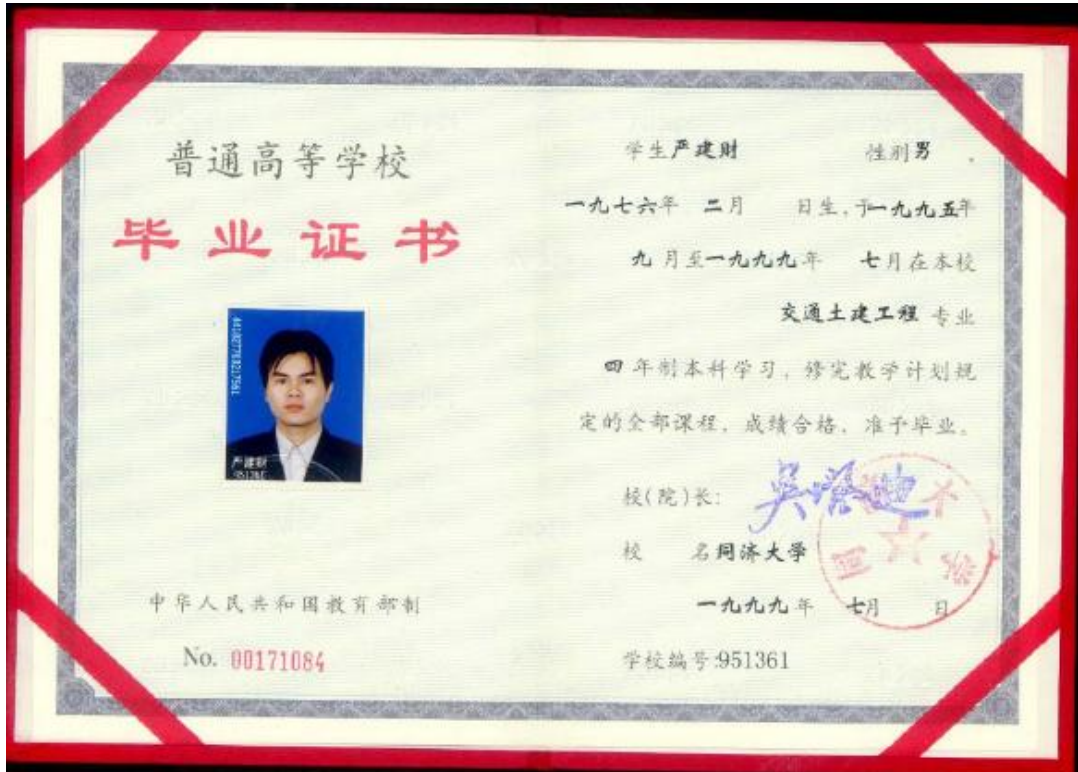 普通高等学校
毕业证书
严建财
中华人民共和国教育部制
No. 00171084
学生严建财 性别男 .
一九七六年 二月 日生,于一九九五年
九月至一九九九年 七月在本校
交通土建工程 专业
四年制本科学习,修完教学计划规
定的全部课程,成绩合格,准予毕业。
校(院)长:
校 名同济大学
一九九九年 七月 日
学校编号:951361